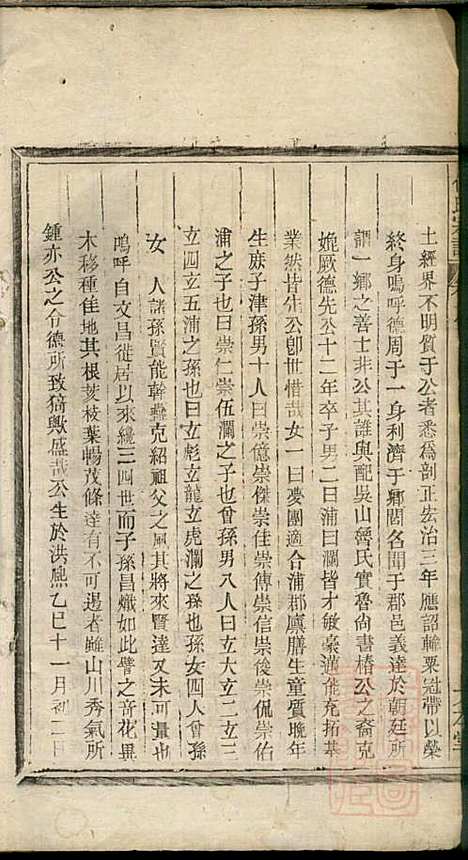 土經界不明質于公者悉為剖正宏治三年應詔輸粟冠帶以榮
終身嗚呼德周于一身利濟于鄉閭名聞于郡邑義達於朝廷所
謂一鄉之善士非公其誰與配吳山魯氏實魯尚書椿公之裔克
婉厥德先公十二年卒子男二曰浦曰瀾皆才敏豪邁能充拓基
業然皆先公卽世惜哉女一曰夢團適合浦郡廪膳生童質晚年
生庶子津孫男十人曰崇億崇傑崇佳崇傳崇信崇俊崇侃崇佑
浦之子也曰崇仁崇伍瀾之子也曾孫男八人曰立大立二立三
立四立五浦之孫也曰立彪立龍立虎瀾之孫也孫女四人曾孫
女 人諸孫賢能幹蠱克紹祖父之風其將來賢達又未可量也
嗚呼自文昌徙居以來纔三四世而子孫昌熾如此譬之奇花異
木移種佳地其根荄枝葉暢茂條達有不可遏者雖山川秀氣所
鍾亦公之令德所致猗歟盛哉公生於洪熙乙巳十一月初二日